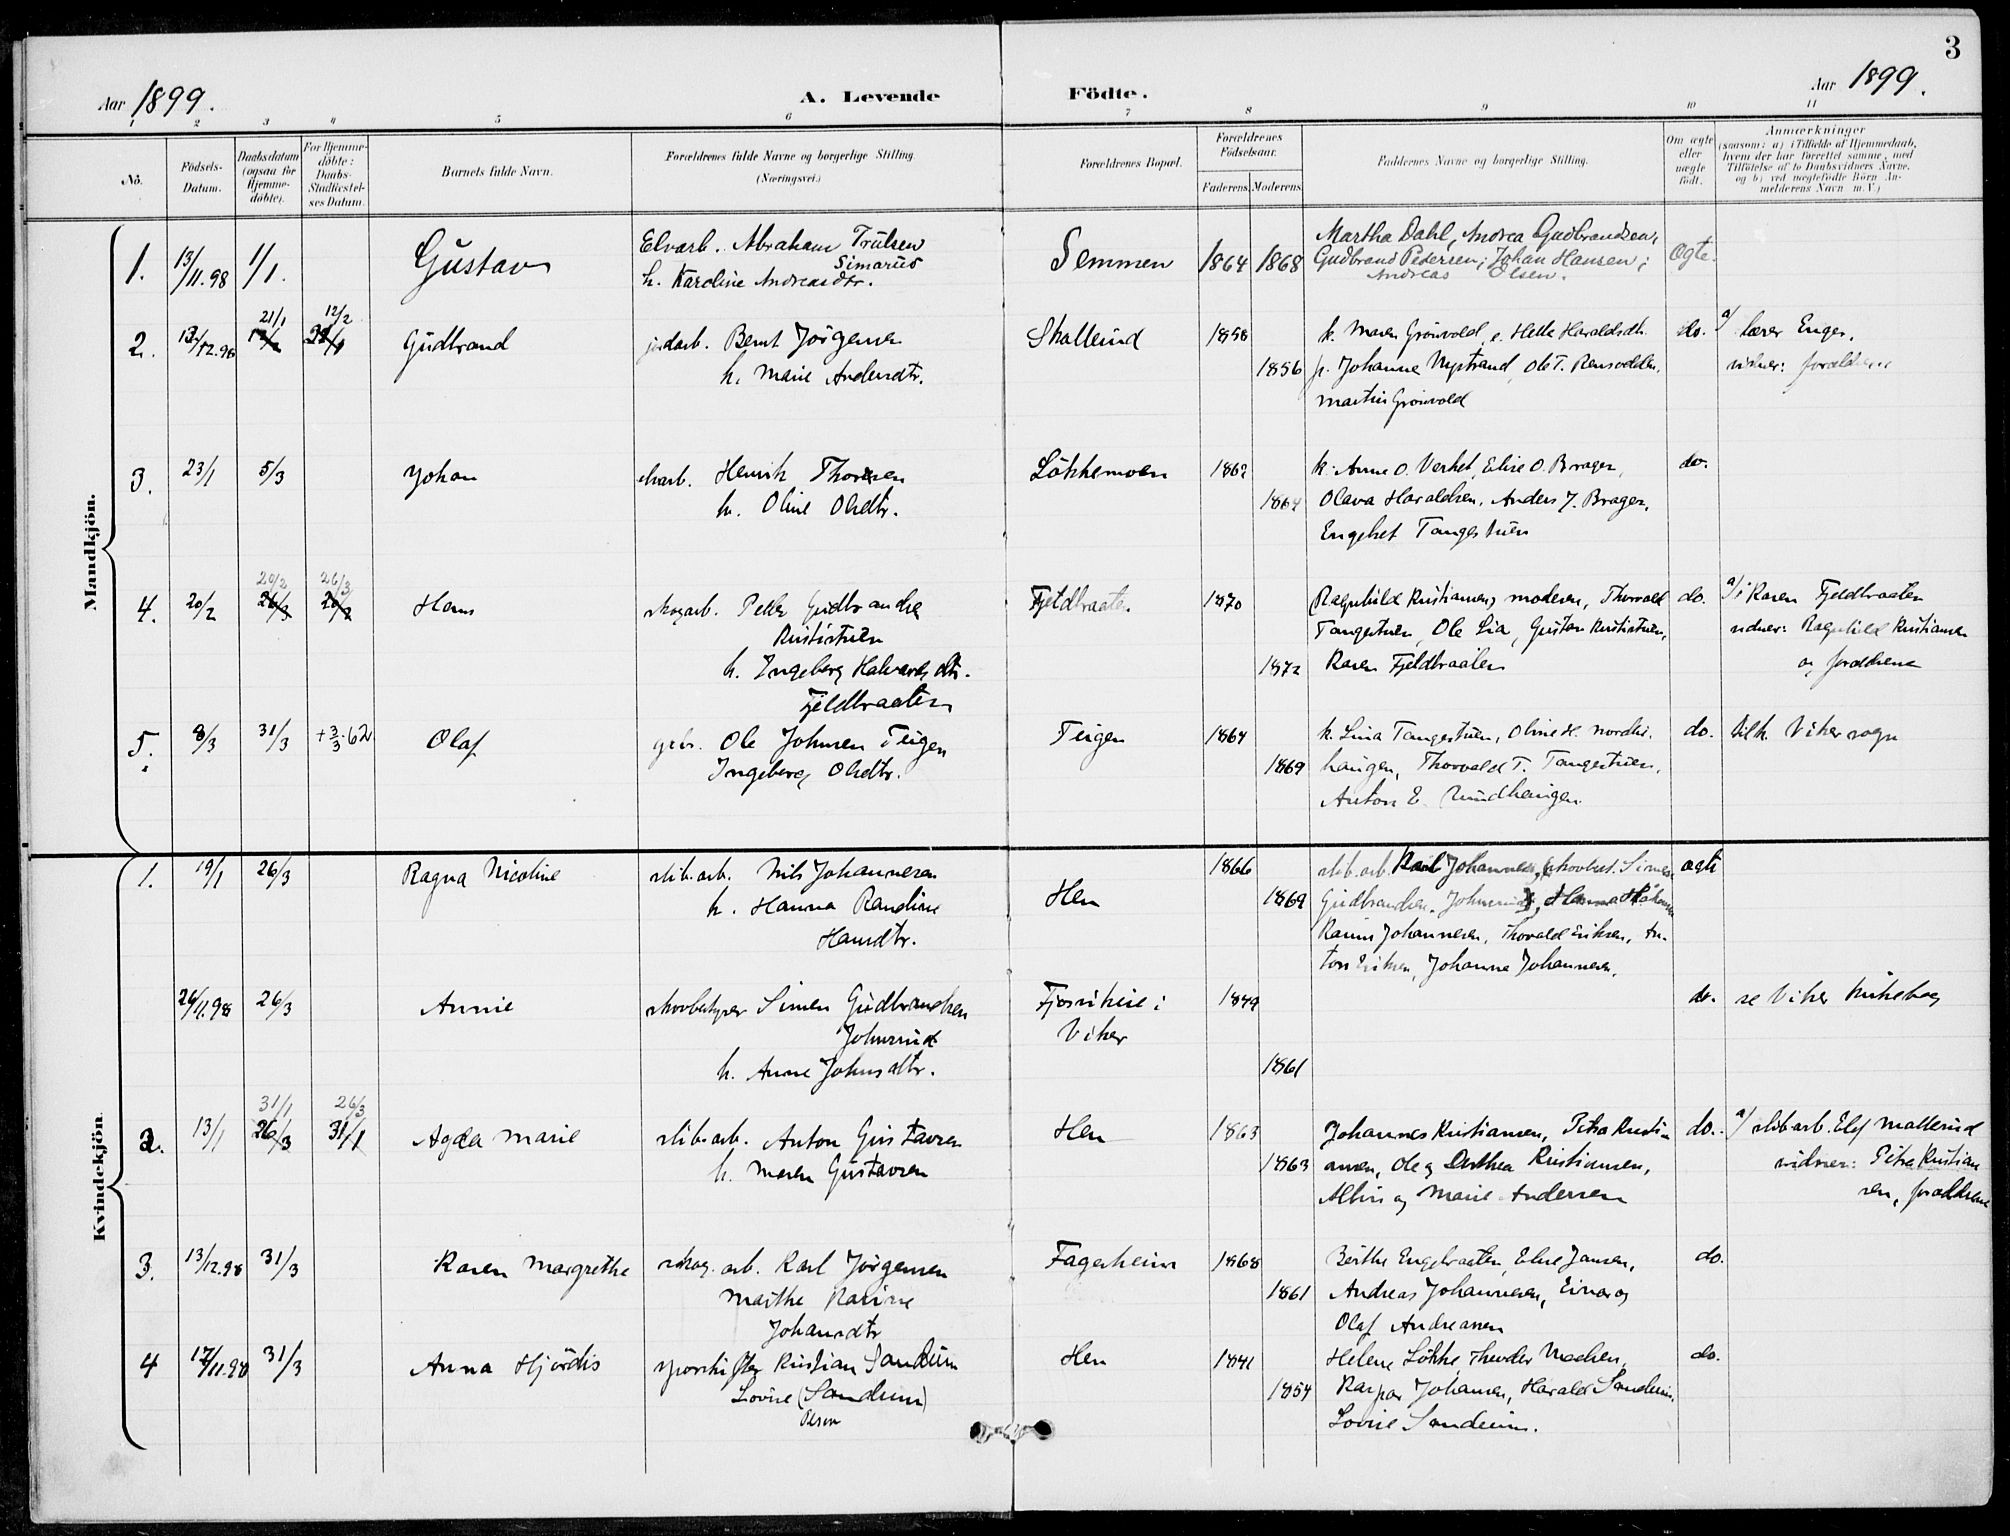 3
Aar 1899.
A. Levende Födte.
Aar 1899.
1 2 3 4 5 6 7 8 9 10 11
No.
Födsels-
Datum.
Daabsdatum
(ogsaa for
Hjemme-
döbte).
For Hjemme-
döbte:
Daabs-
Stadfæstel-
ses Datum.
Barnets fulde Navn.
Forældrenes fulde Navne og borgerlige Stilling
(Næringsvei.)
Forældrenes Bopæl.
Forældrenes
Födselsaar.
Faderens Moderens
Faddernes Navne og borgerlige Stilling.
Om ægte
eller
uægte
födt.
Anmærkninger
(saasom: a) i Tilfælde af Hjemmedaab,
hvem der har forrettet samme, med
Tilföielse af to Daabsvidners Navne,
og b) ved uægtefödte Börn An-
melderens Navn m. V.)
Mandkjön.
1. 13/11.98 1/1. Gustav
Elvarb. Abraham Trulsen
Simarud
h. Karoline Andreasdtr.
Semmen 1864 1868
Martha Dahl, Andrea Gudbrandsen,
Gudbrand Pedersen, Johan Hansen,
Andreas Olsen.
Ægte.
2. 13/12.98 21/1 12/2 Gudbrand
jordarb. Bernt Jörgensen
h. Marie Andersdtr.
Skallerud 1858
1856
k. Maren Grönvold, e. Helle Haraldsdtr.
p. Johanne Nystrand, Ole T. Rensvolden,
Martin Grönvold
do.
a/ lærer Enger.
vidner: forældrene
3. 23/1 5/3 Johan
elvarb. Henrik Thoresen
h. Oline Olsdtr.
Lökkemoen 1862
1864
k. Anne O. Verket, Elise O. Bragen,
Olava Haraldsen, Anders J. Bragen,
Engebret Tangestuen
do.
4. 20/2 20/2 26/3 Hans
skogarb. Peder Gudbrandsen
Krististuen
h. Ingeborg Halvorsdtr.
Fjeldbraaten
Fjeldbraaten 1870
1872
Ragnhild Kristiansen, moderen, Thorvald
Tangestuen, Ole Lia, Gustav Krististuen,
Karen Fjeldbraaten
do.
a/ Karen Fjeldbraaten
vidner: Ragnhild Kristiansen
og forældrene
5. 8/3 31/3 + 3/3.62 Olaf
grbr. Ole Johnsen Teigen
Ingeborg Olsdtr.
Teigen 1864
1869
k. Lina Tangestuen, Oline H. Nordli-
haugen, Thorvald T. Tangestuen,
Anton E. Sundhaugen.
do.
tilh. Viker sogn
Kvindekjön
1. 19/1 26/3 Ragna Nicoline
slib.arb. Nils Johannesen
h. Hanna Randine
Hansdtr.
Hen 1866
1869
slib.arb. Karl Johannesen, skovbest. Simen
Gudbrandsen Johnsrud, Hanna
Karine Johannesen, Thorvald Eriksen, An-
ton Eriksen, Johanne Johannesen.
ægte
24/11.98 26/3 Annie
skovbestyrer Simen Gudbrandsen
Johnsrud
h. Anne Johnsdtr.
i
Viker
1849
1861
do. se Viker kirkebog
2. 13/1 31/1 26/3 Agda Marie
26/3 31/1
slib.arb. Anton Gustavsen
h. Maren Gustavsen
Hen 1863
1863
Johannes Kristiansen, Petra Kristi-
ansen, Ole og Dorthea Kristiansen,
Albin og Marie Andersen
do.
a/ slibarb. Elef Mallerud
vidner: Petra Kristian
sen, forældrene
3. 13/12.98 31/3 Karen Margrethe
skog. arb. Karl Jörgensen
Marthe Karine
Johansdtr
Fagerheim 1868
1861
Berthe Engebraaten, Elise Jansen,
Andreas Johannesen, Einar og
Olaf Andreassen
do.
4 17/11.98 31/3 Anna Hjördis
sporskifter Kristian Sandum
Lovise (Sandum)
Olsen
Hen 1841
1854
Helene Lökke, Theodor Madsen,
Kaspar Johansen, Harald Sandum,
Lovise Sandum.
do.